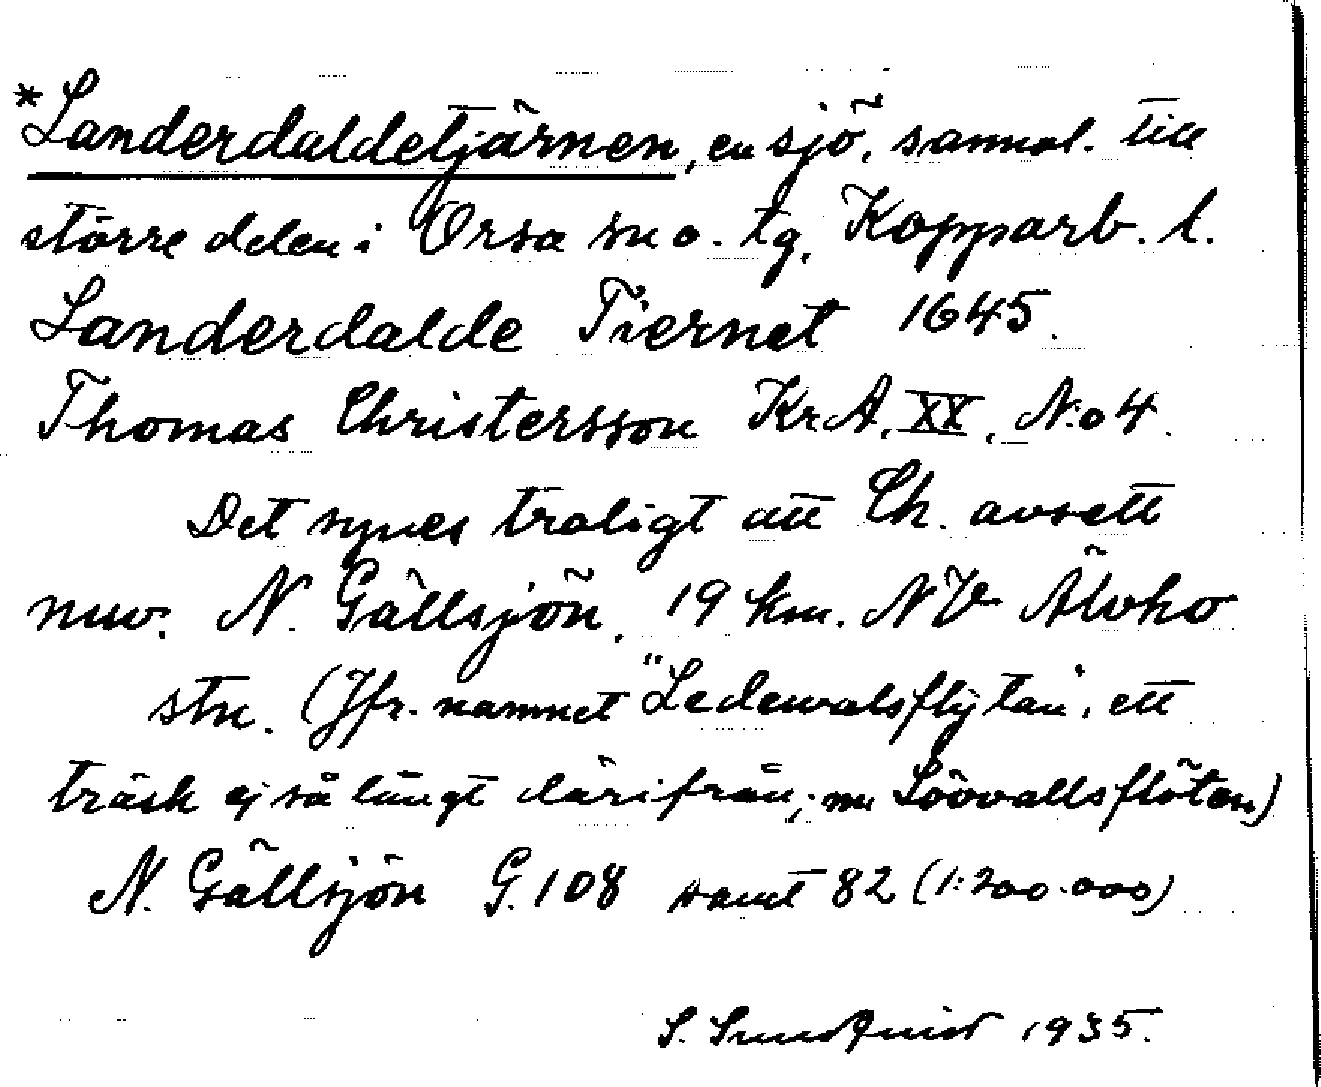 *Landerdaldetjärnen, en sjö, sannol. till
större delen i Orsa sn o. tg, Kopparb. l.
Landerdalde Tiernet 1645.
Thomas Christersson Kr.A. XX, N:o 4.
Det synes troligt att Ch. avsett
nuv. N. Gällsjön, 19 km. NV Älvho
stn. (Jfr. namnet "Ledewalsflÿtan", ett
träsk ej så långt därifrån; nu Löövallsflöten)
N. Gällsjön G. 108 samt 82 (1:200.000)
S. Sundquist 1935.